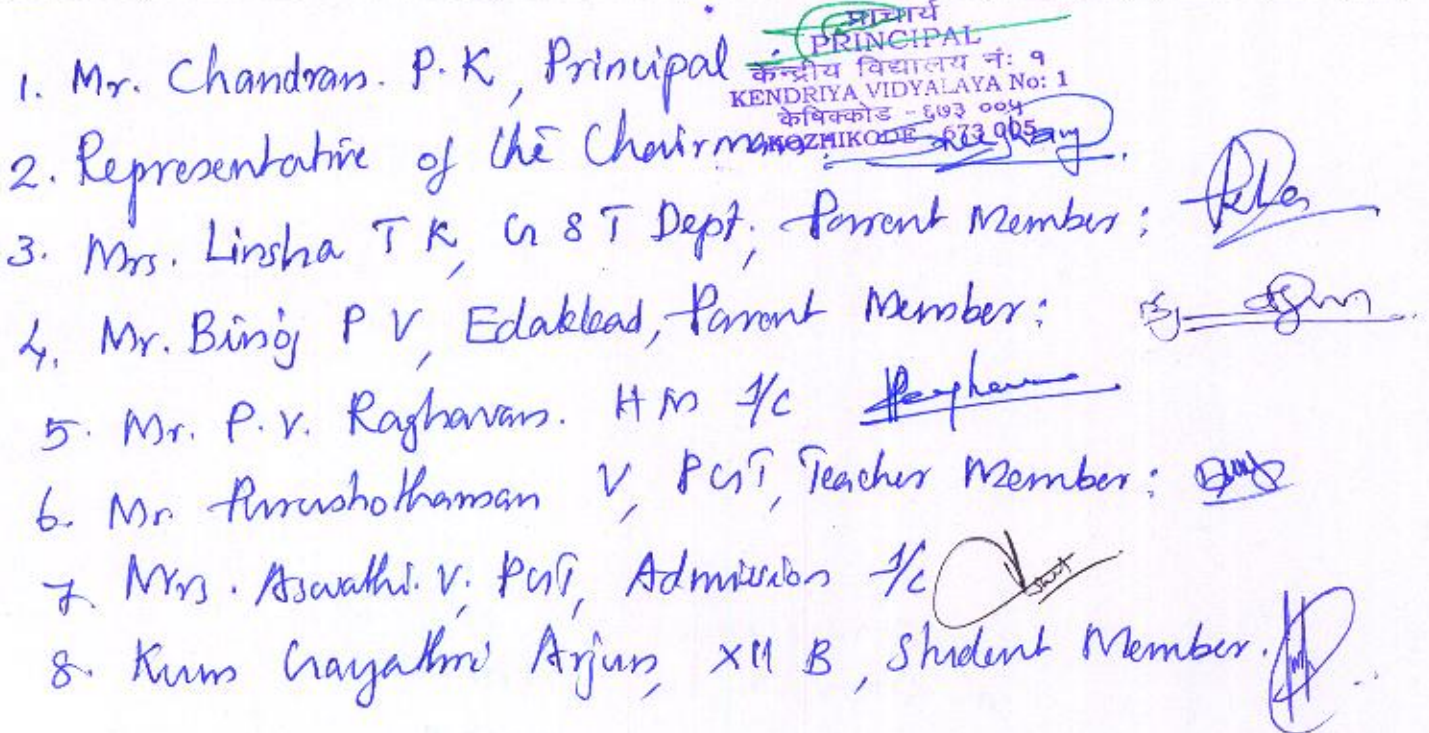 1. Mr. Chandran. P.K, Principal :
प्राचार्य
PRINCIPAL
केन्द्रीय विद्यालय नं: १
KENDRIYA VIDYALAYA No: 1
केषिक्कोड - ६७३ ००५
KOZHIKODE - 673 005
2. Representative of the Chairman :
3. Mrs. Linsha T K, GST Dept, Parent Member :
4. Mr. Binoj P V, Edakkad, Parent Member :
5. Mr. P. V. Raghavan. HM I/C
6. Mr. Purushothaman V, PGT, Teacher Member :
7. Mrs. Aswathi. V. PGT, Admission I/C
8. Kum Gayathri Arjun, XII B, Student Member.